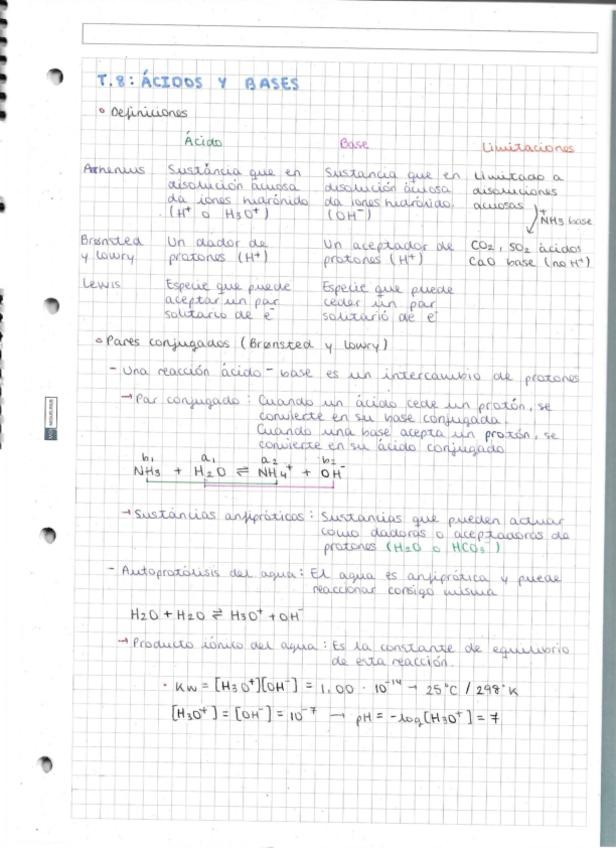 T.8: ÁCIDOS Y BASES
Definiciones
Ácido Base Limitaciones
Arrhenius Sustáncia que en Sustancia que en Limitado a
disolución acuosa disolución acuosa disoluciones
da iones hidrónido da iones hidróxido. acuosas
(H⁺ o H3O⁺) (OH⁻) NH3 base
Brønsted Un dador de Un aceptador de CO2, SO2 ácidos
y Lowry protones (H⁺) protones (H⁺) CaO base (no H⁺)
Lewis Especie que puede Especie que puede
aceptar un par ceder un par
solitario de e⁻ solitario de e⁻
Pares conjugados (Brønsted y Lowry)
- Una reacción ácido-base es un intercambio de protones
→ Par conjugado: Cuando un ácido cede un protón, se
convierte en su base conjugada.
Cuando una base acepta un protón, se
convierte en su ácido conjugado
b1 a1 a2 b2
NH3 + H2O ⇌ NH4⁺ + OH⁻
→ Sustáncias anfipróticas: Sustancias que pueden actuar
como dadoras o aceptadoras de
protones (H2O o HCO3⁻)
- Autoprotólisis del agua: El agua es anfiprótica y puede
reaccionar consigo misma
H2O + H2O ⇌ H3O⁺ + OH⁻
→ Producto iónico del agua: Es la constante de equilibrio
de esta reacción.
· Kw = [H3O⁺][OH⁻] = 1,00 · 10⁻¹⁴ → 25°C / 298°K
[H3O⁺] = [OH⁻] = 10⁻⁷ → pH = -log[H3O⁺] = 7